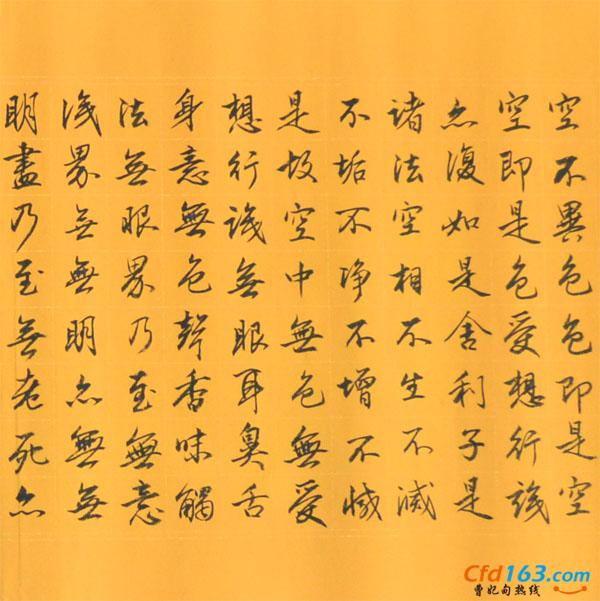 空不異色色即是空
空即是色受想行識
亦復如是舍利子是
諸法空相不生不滅
不垢不净不增不減
是故空中無色無受
想行識無眼耳鼻舌
身意無色聲香味觸
法無眼界乃至無意
識界無無明亦無無
明盡乃至無老死亦
Cfd163.com
曹妃甸热线